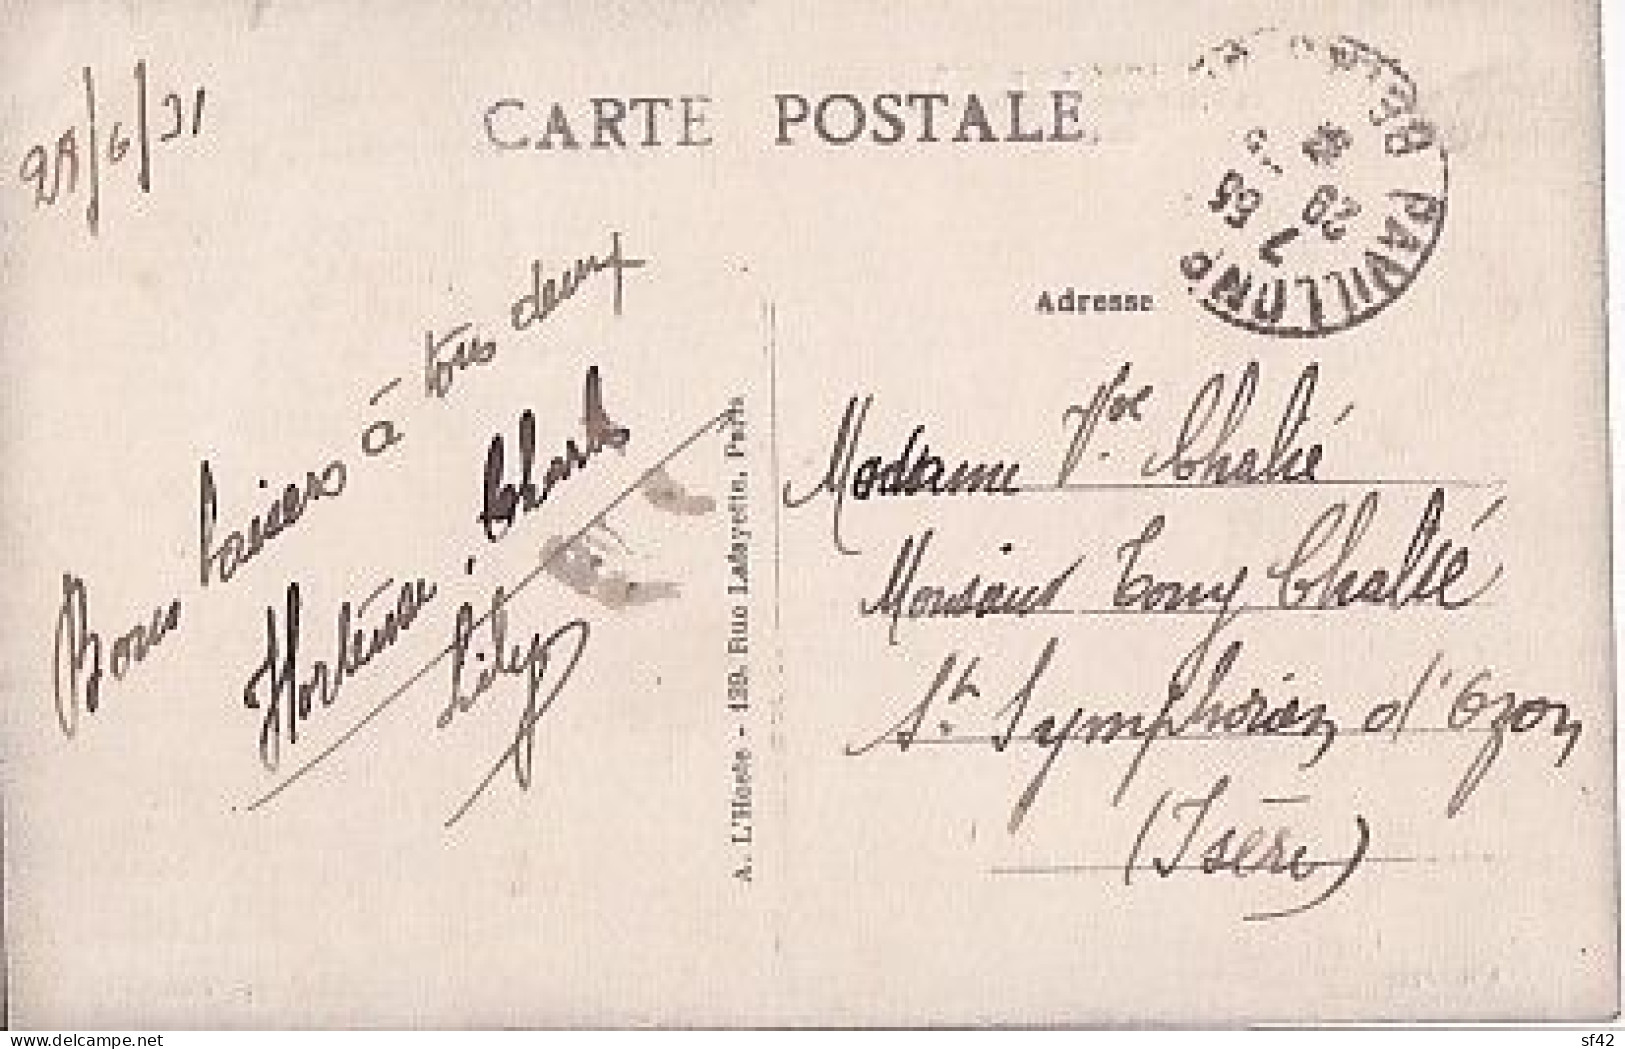 28/6/31
CARTE POSTALE
Adresse
Bons baisers à tous deux
Hortense, Charles
Lily
A. L'Hoste - 129, Rue Lafayette, Paris
Madame Vve Chalié
Monsieur Tony Chalié
St. Symphorien d'Ozon
(Isère)
PAVILLONS
29
delcampe.net
sf42